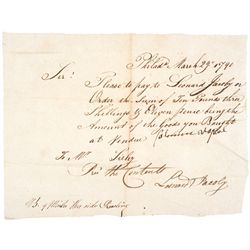 Philad. March 29th 1790
Sir,
Please to pay to Leonard Jacoby or
Order the Sum of Ten Pounds three
Shillings & Eleven pence being the
Amount of the Goods you Bought
at Vendue
To Mr.
Recd. the Contents
Leonard Jacoby